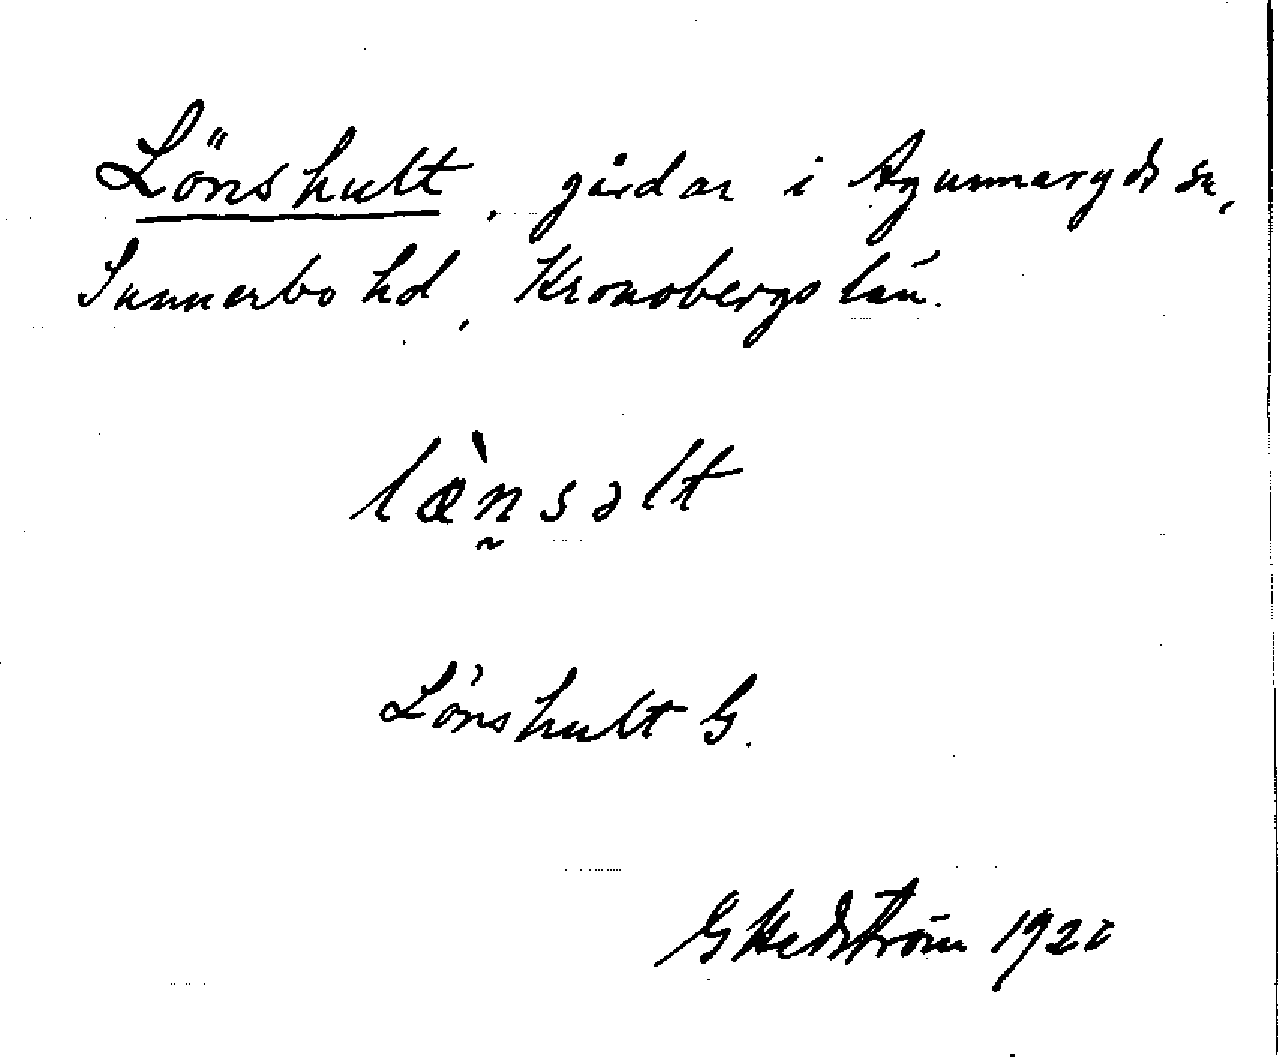 Lönshult, gårdar i Agunnaryds sn,
Sunnerbo hd, Kronobergs län.
læ̀n̰səlt
Lönshult G.
G Hedström 1920